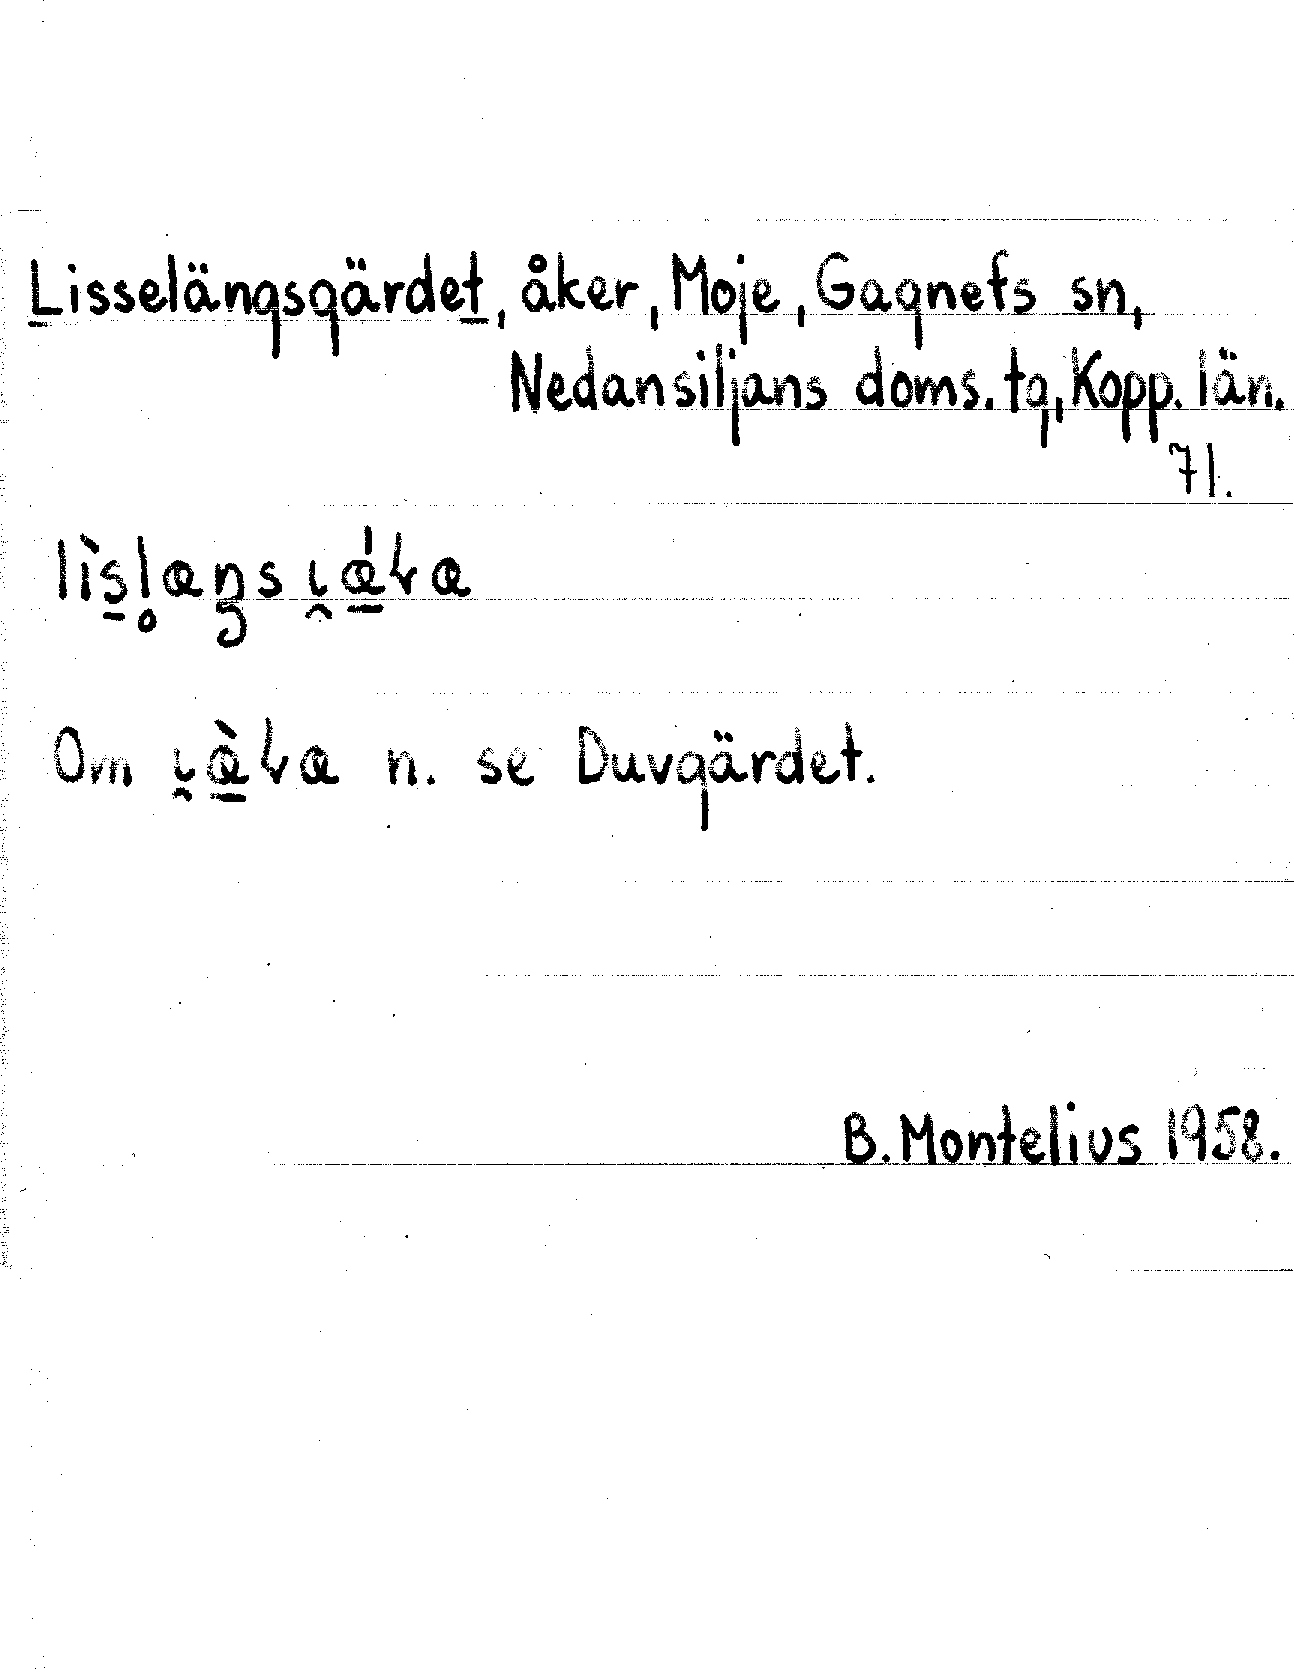 Lisselängsgärdet, åker, Moje, Gagnefs sn,
Nedansiljans doms. tg, Kopp. län.
71.
Om n. se Duvgärdet.
B. Montelius 1958.